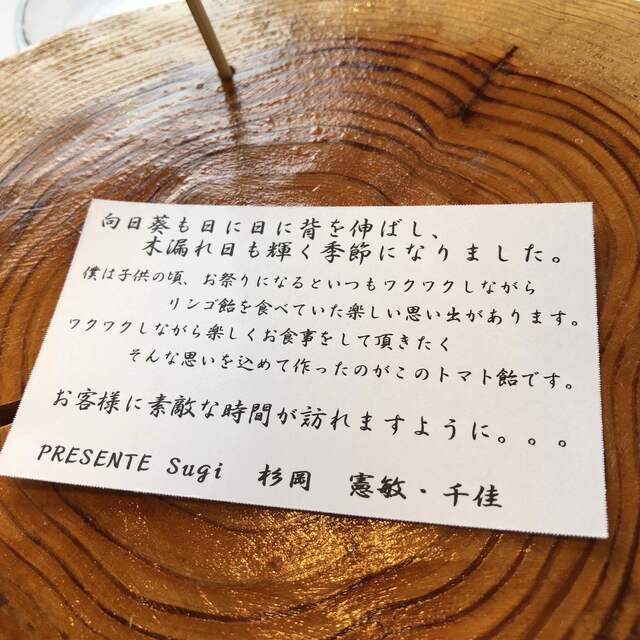 向日葵も日に日に背を伸ばし、
木漏れ日も輝く季節になりました。
僕は子供の頃、お祭りになるといつもワクワクしながら
リンゴ飴を食べていた楽しい思い出があります。
ワクワクしながら楽しくお食事をして頂きたく
そんな思いを込めて作ったのがこのトマト飴です。
お客様に素敵な時間が訪れますように。。。
PRESENTE Sugi 杉岡 憲敏・千佳